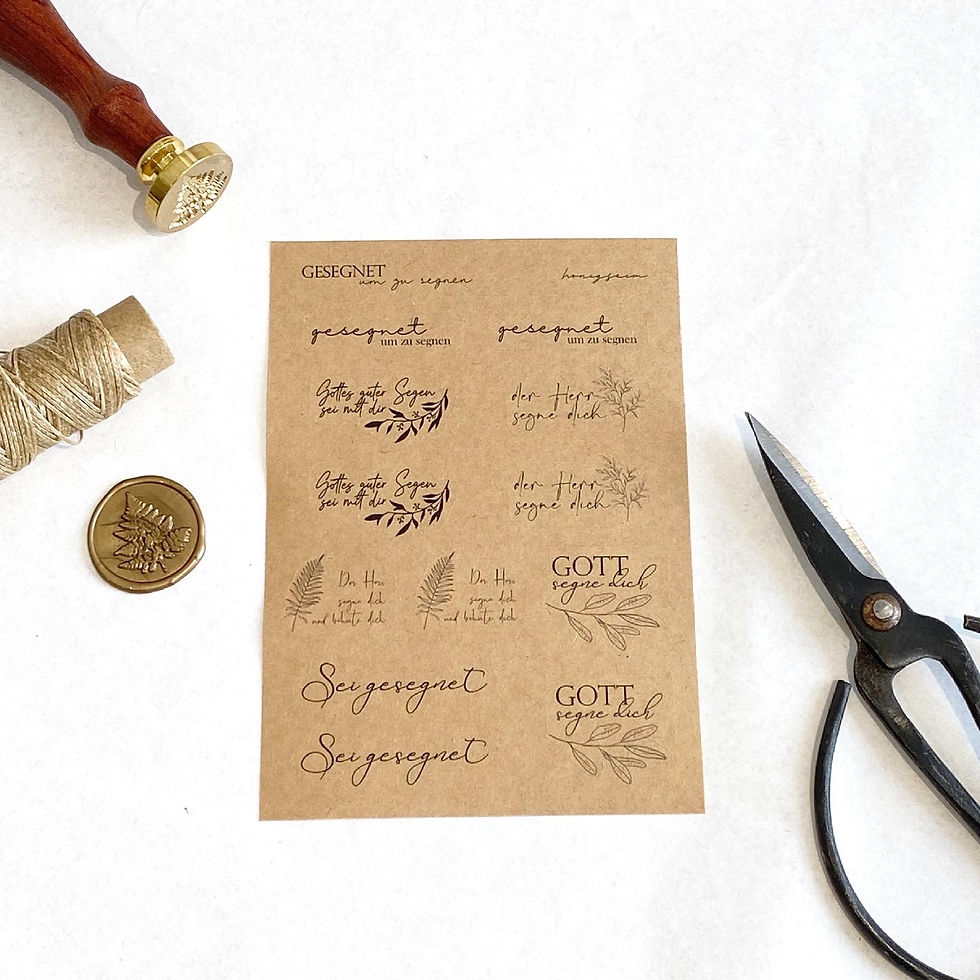 GESEGNET
um zu segnen
honigseim
gesegnet
um zu segnen
gesegnet
um zu segnen
Gottes guter Segen
sei mit dir
der Herr
segne dich
Gottes guter Segen
sei mit dir
der Herr
segne dich
Der Herr
segne dich
und behüte dich
Der Herr
segne dich
und behüte dich
GOTT
segne dich
Sei gesegnet
GOTT
segne dich
Sei gesegnet